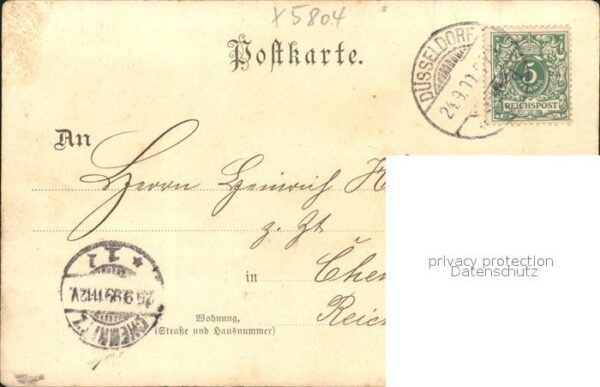 x 5804
Postkarte.
DÜSSELDORF
24.9.99
5
REICHSPOST
An
Herrn Heinrich H
z. Zt
privacy protection
Datenschutz
in
Chem
Reich
Wohnung,
(Straße und Hausnummer)
* 1.1
25.9.99.11-12V.
CHEMNITZ